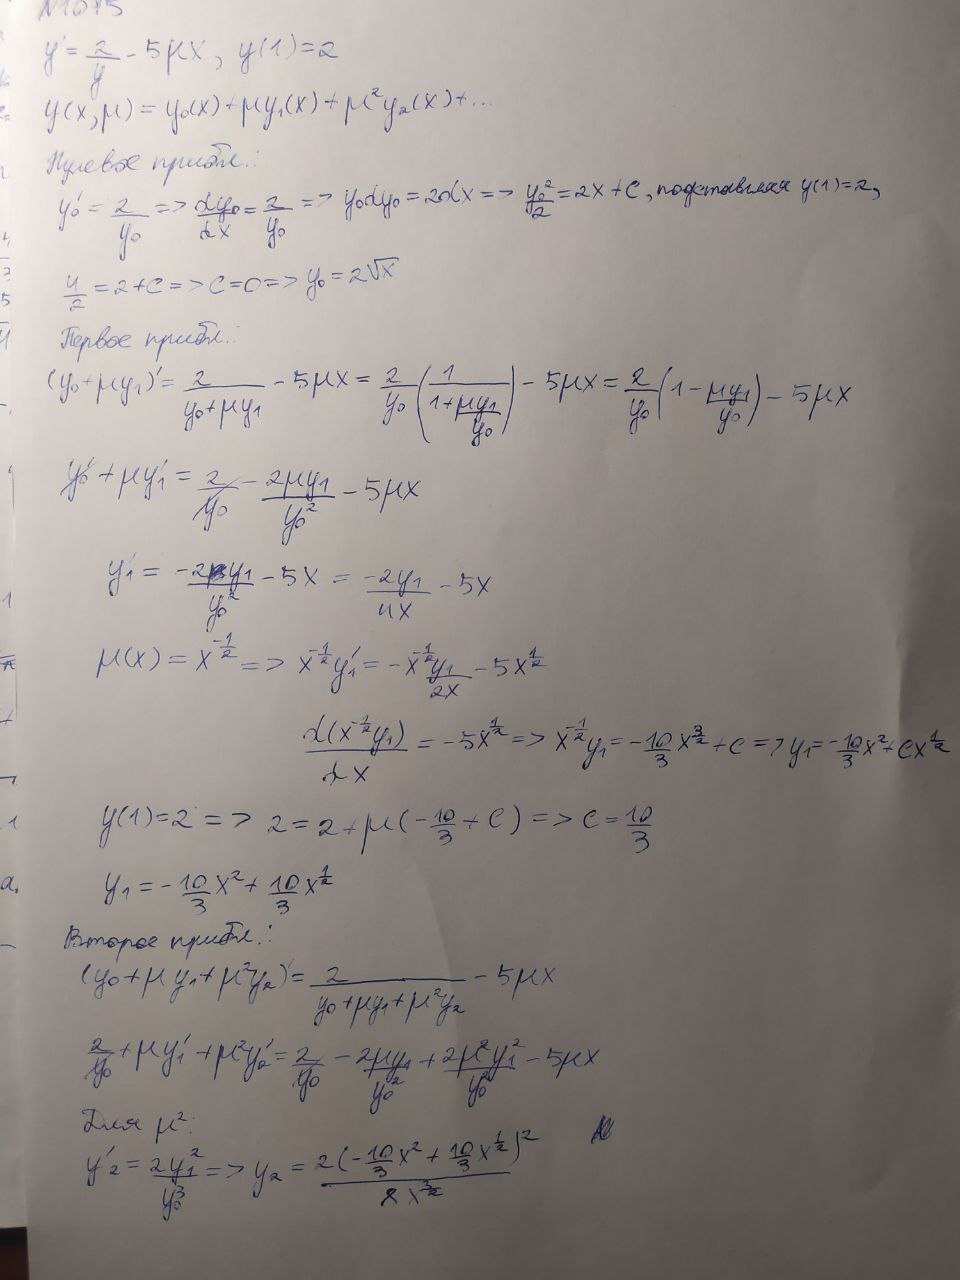 N1075
y' = 2/y - 5μx, y(1)=2
y(x,μ) = y₀(x)+μy₁(x)+μ²y₂(x)+...
Нулевое прибл.:
y₀' = 2/y₀ => dy₀/dx = 2/y₀ => y₀dy₀ = 2dx => y₀²/2 = 2x + C, подставляя y(1)=2,
4/2 = 2+C => C=0 => y₀ = 2√x
Первое прибл.:
(y₀+μy₁)' = 2/(y₀+μy₁) - 5μx = 2/y₀ (1/(1+μy₁/y₀)) - 5μx = 2/y₀ (1 - μy₁/y₀) - 5μx
y₀' + μy₁' = 2/y₀ - 2μy₁/y₀² - 5μx
y₁' = -2y₁/y₀² - 5x = -2y₁/4x - 5x
μ(x) = x^(-1/2) => x^(-1/2) y₁' = -x^(-1/2) y₁/2x - 5x^(1/2)
d(x^(-1/2) y₁)/dx = -5x^(1/2) => x^(-1/2) y₁ = -10/3 x^(3/2) + C => y₁ = -10/3 x² + Cx^(1/2)
y(1)=2 => 2 = 2 + μ(-10/3 + C) => C = 10/3
y₁ = -10/3 x² + 10/3 x^(1/2)
Второе прибл.:
(y₀+μy₁+μ²y₂)' = 2/(y₀+μy₁+μ²y₂) - 5μx
2/y₀ + μy₁' + μ²y₂' = 2/y₀ - 2μy₁/y₀² + 2μ²y₁²/y₀³ - 5μx
Для μ²:
y'₂ = 2y₁²/y₀³ => y₂ = 2(-10/3 x² + 10/3 x^(1/2))²/8x^(3/2)